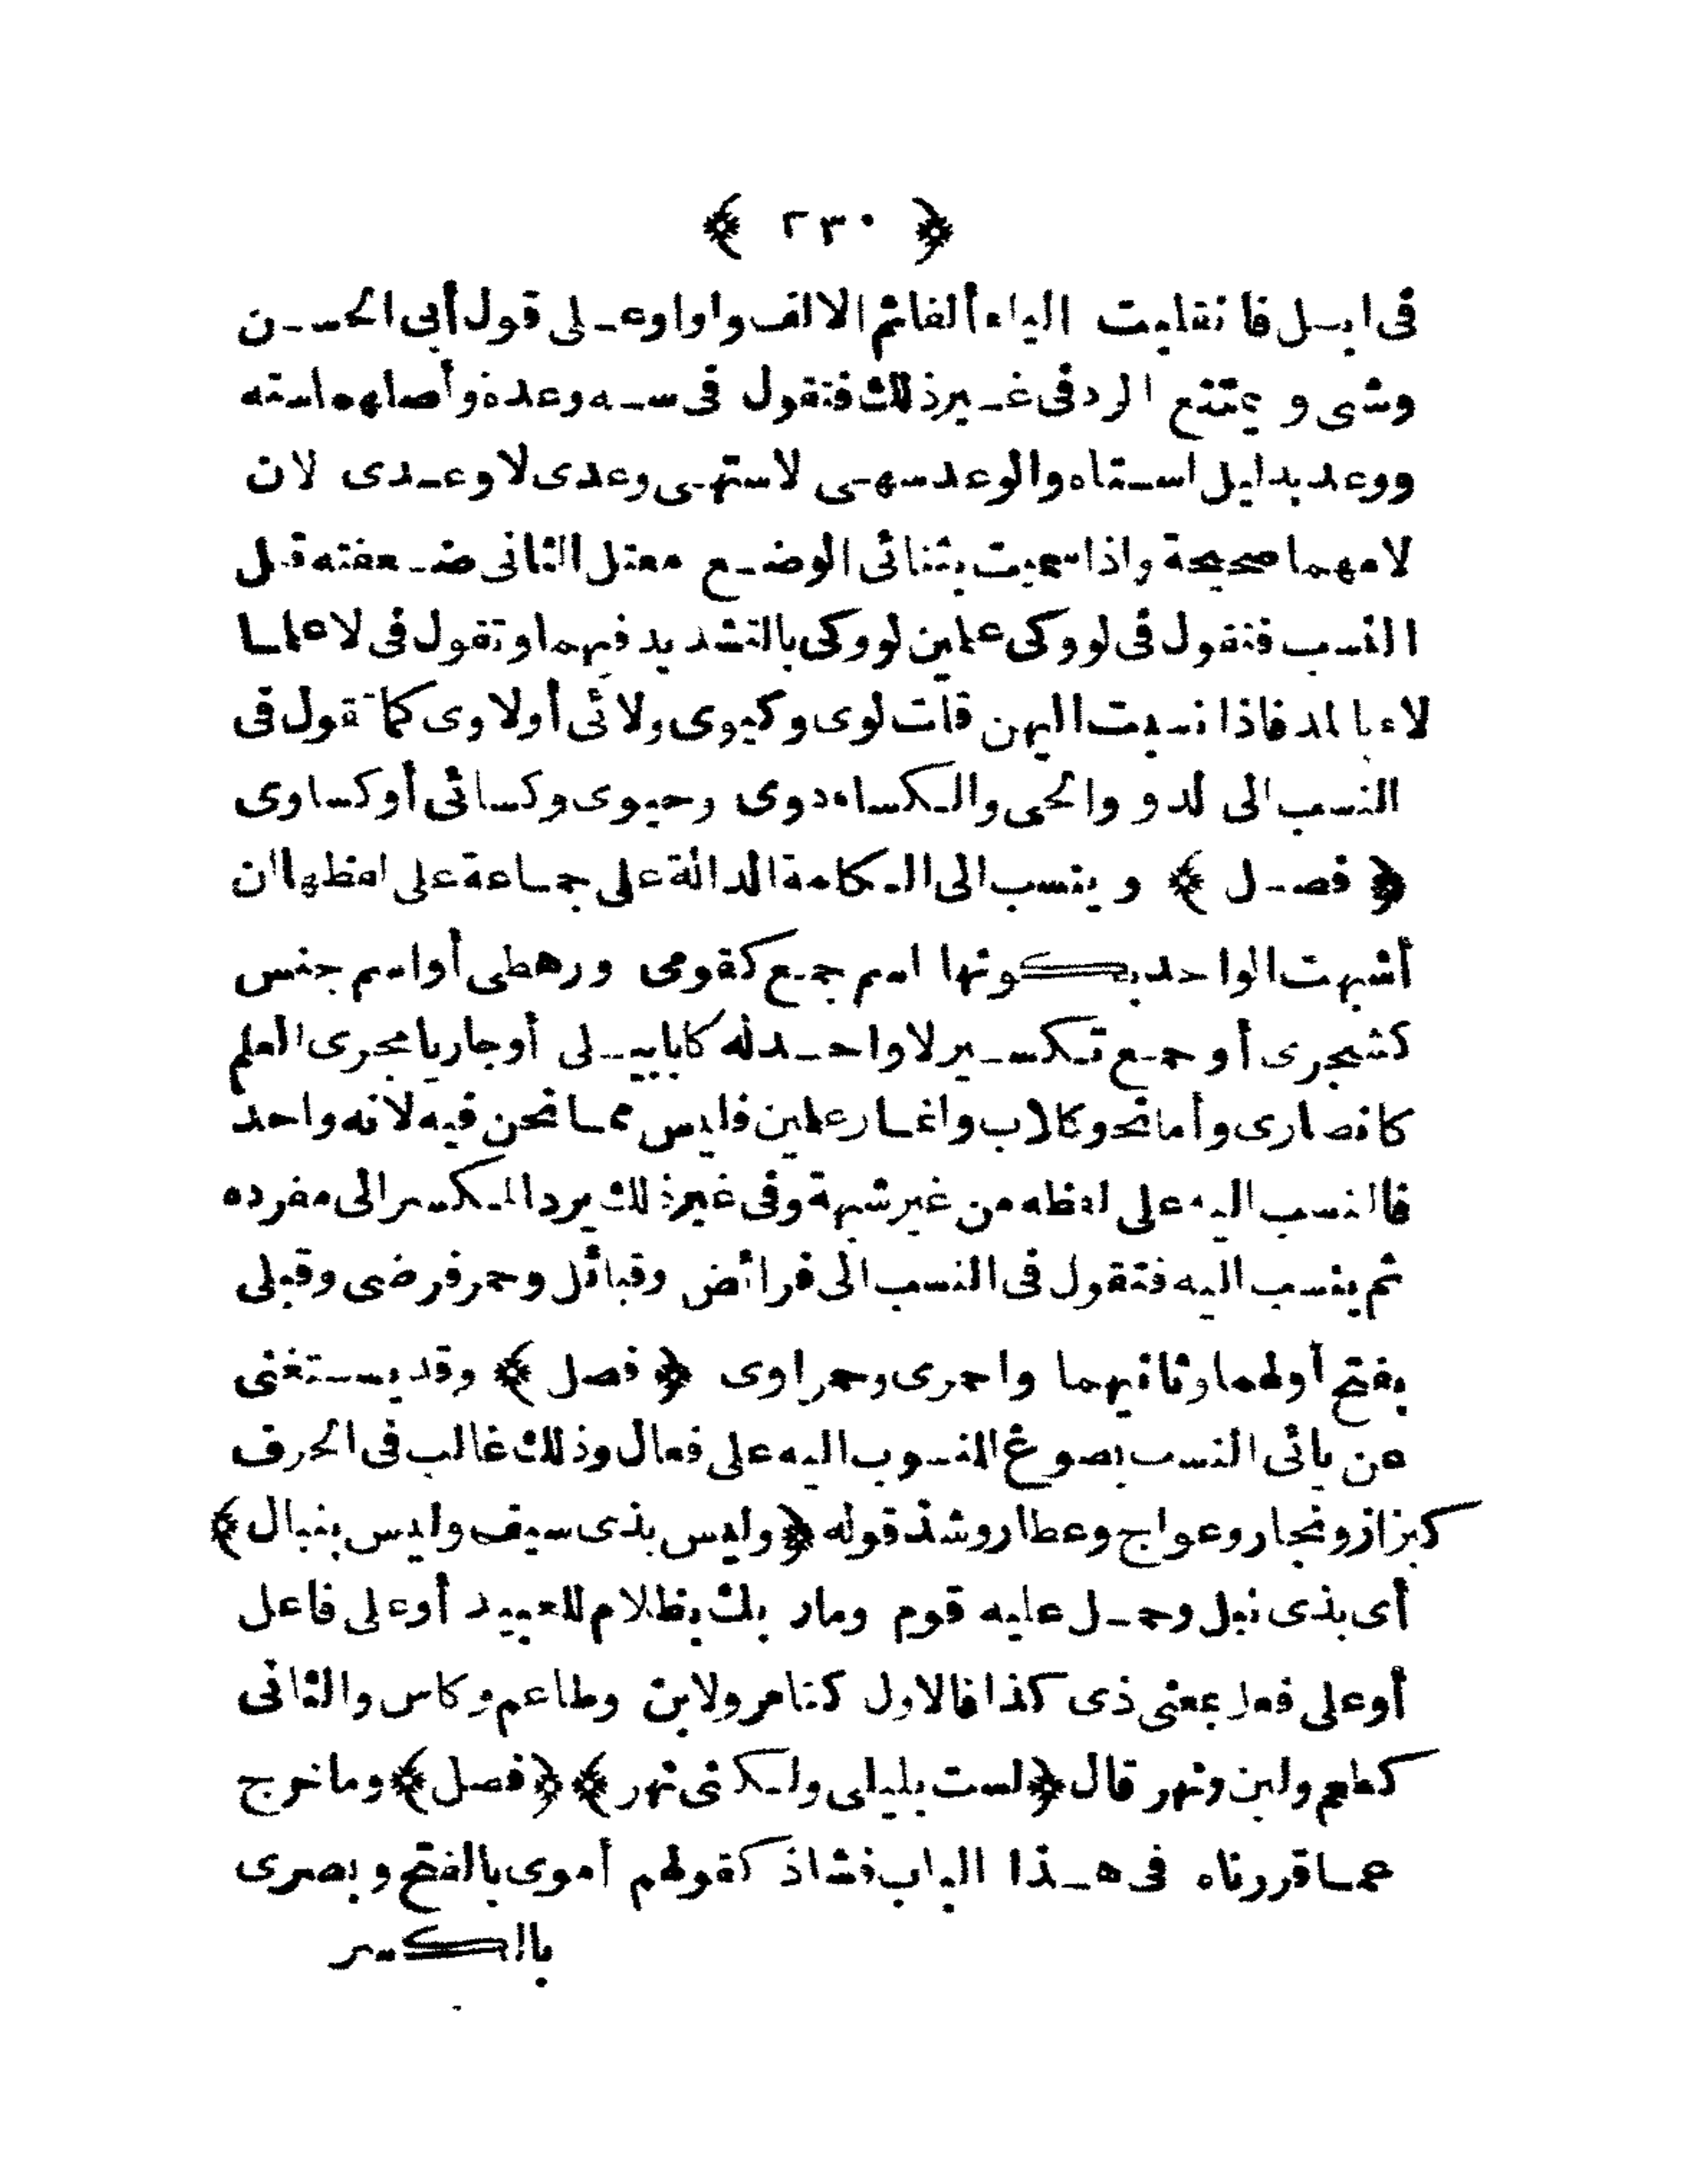 ﴿ ٢٣٠ ﴾
فى ابـل فانقلبت الياء ألفا ثم الالف واوا وعلى قول أبى الحسن
وشى ويمتنع الرد فى غير ذلك فتقول فى سه وعدة وأصلهما سته
ووعد بدليل استاه والوعد سهى لا ستهى وعدى لا وعدى لان
لامهما صحيحة واذا سميت بثنائى الوضع معتل الثانى ضعفته قبل
النسب فتقول فى لو وكى علمين لو وكى بالتشديد فيهما وتقول فى لا علما
لاء بالمد فاذا نسبت اليهن قلت لوى وكيوى ولائى أولاوى كما تقول فى
النسب الى لدو والحى والكساء دوى وحيوى وكسائى أو كساوى
﴿ فصل ﴾ وينسب الى الكلمة الدالة على جماعة على لفظها ان
أشبهت الواحد بكونها اسم جمع كقومى ورهطى أو اسم جنس
كشجرى أو جمع تكسير لا واحد له كابابيلى أو جاريا مجرى العلم
كانصارى وأما نحو كلاب وانمار علمين فليس مما نحن فيه لانه واحد
فالنسب اليه على لفظه من غير شبهة وفى غير ذلك يرد المكسر الى مفرده
ثم ينسب اليه فتقول فى النسب الى فرائض وقبائل وحمر فرضى وقبلى
بفتح أولهما وثانيهما واحمرى وحمراوى ﴿ فصل ﴾ وقد يستغنى
عن يائى النسب بصوغ المنسوب اليه على فعال وذلك غالب فى الحرف
كبزاز ونجار وعواج وعطار وشذ قوله ﴿وليس بذى سيف وليس بنبال﴾
أى بذى نبل وحمل عليه قوم وما ربك بظلام للعبيد أو على فاعل
أو على فعل بمعنى ذى كذا فالاول كتامر ولابن وطاعم وكاس والثانى
كطعم ولبن ونهر قال ﴿لست بليلى ولكنى نهر﴾ ﴿فصل﴾ وما خرج
عما قررناه فى هذا الباب فشاذ كقولهم أموى بالفتح وبصرى
بالكسر